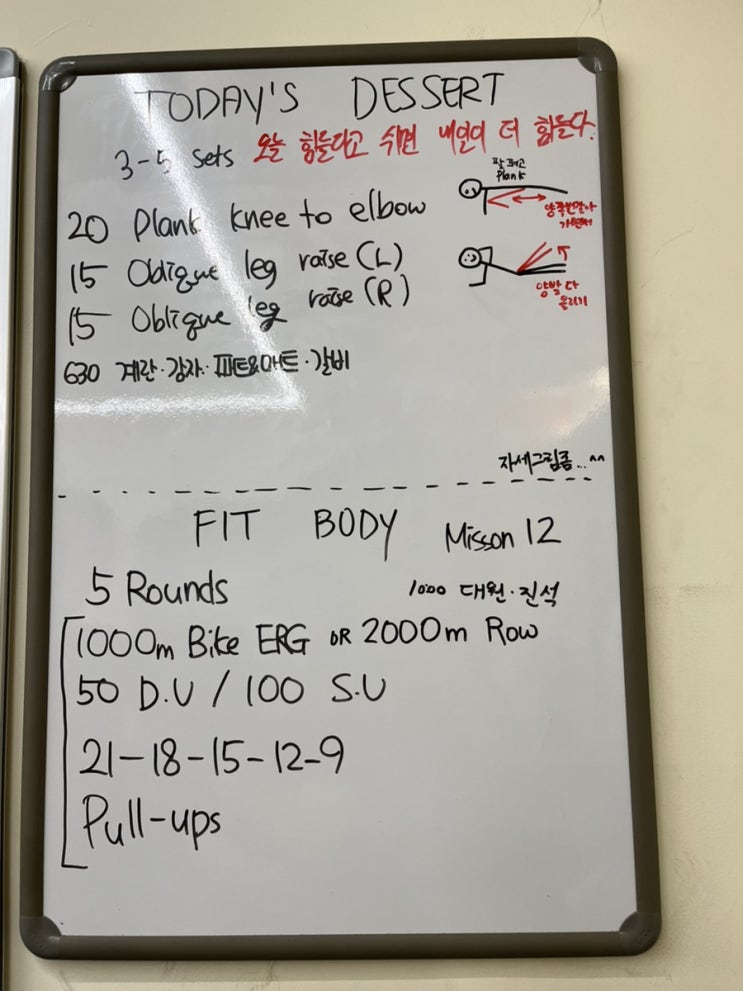 TODAY'S DESSERT
3-5 sets 오늘 힘들다고 쉬면 내일이 더 힘들다.
팔 펴고
Plank
20 Plank knee to elbow
양쪽번갈아
가면서
15 Oblique leg raise (L)
15 Oblique leg raise (R)
양발 다
올리기
630 계란·감자·파트&마트·갈비
자세그림좀...^^
FIT BODY Misson 12
5 Rounds
1000 대원·진석
1000m Bike ERG OR 2000m Row
50 D.U / 100 S.U
21-18-15-12-9
Pull-ups